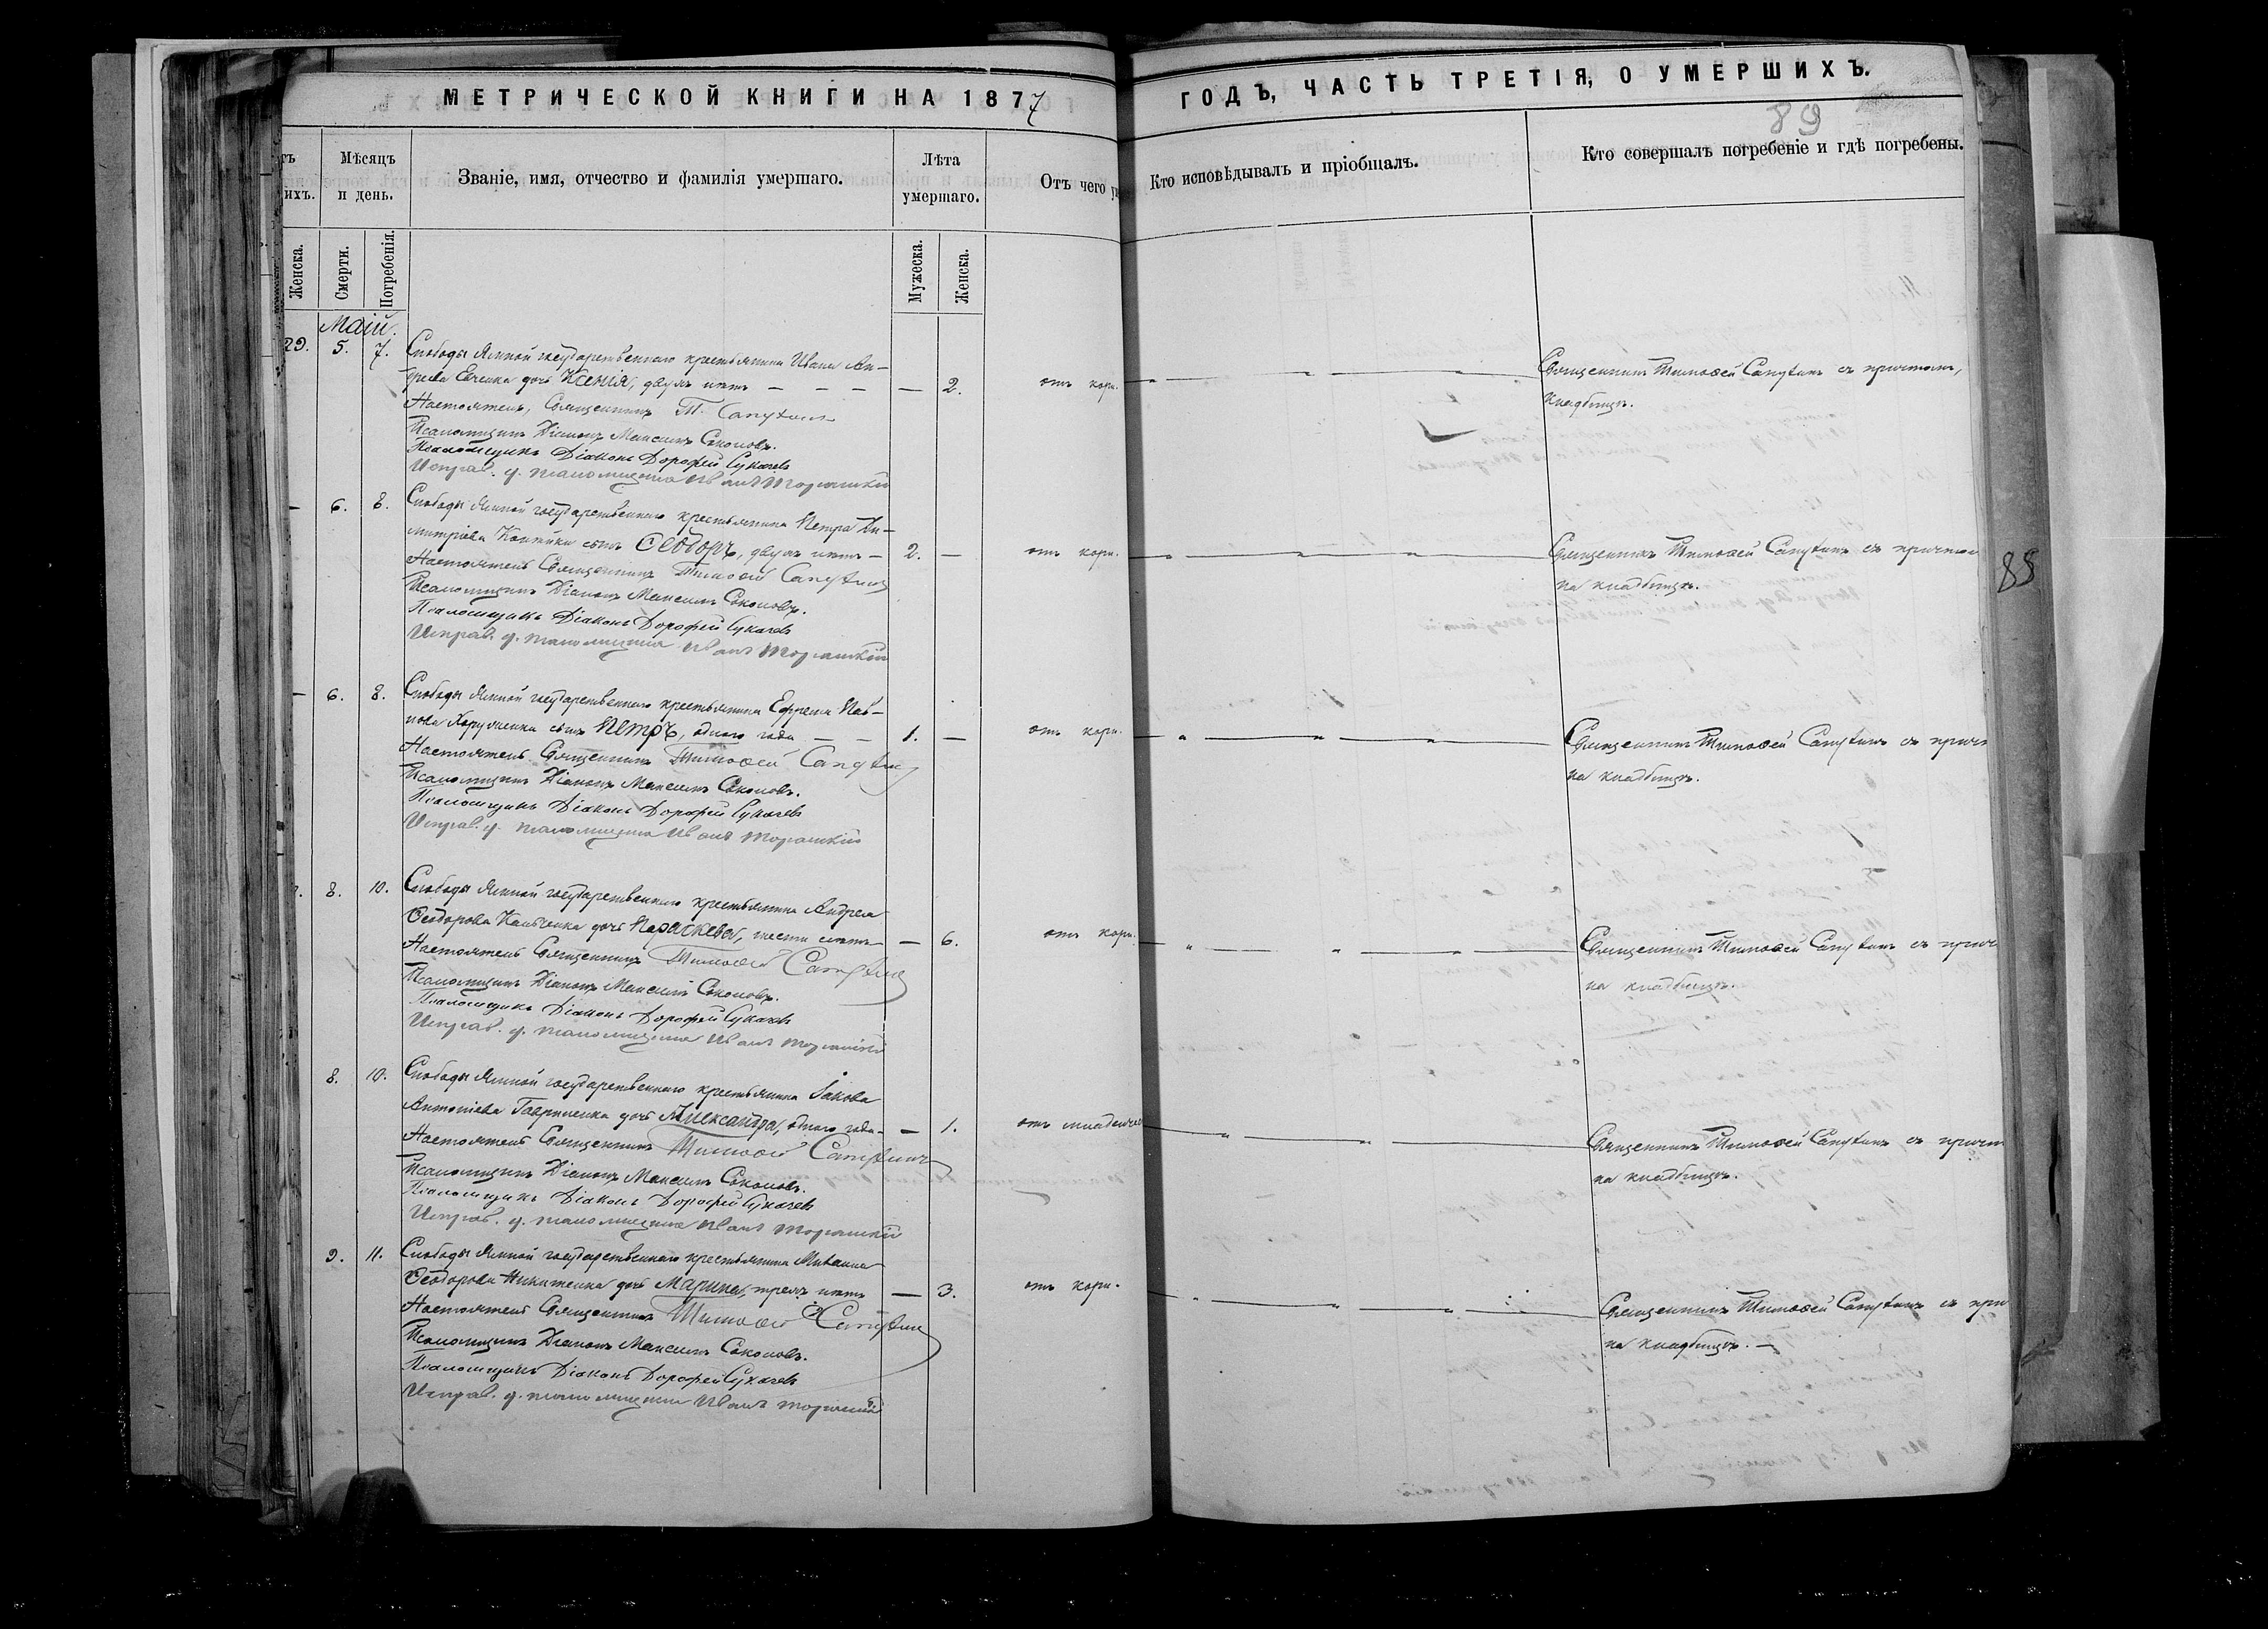 МЕТРИЧЕСКОЙ КНИГИ НА 1877
ГОДЪ, ЧАСТЬ ТРЕТІЯ, О УМЕРШИХЪ.
89
Мѣсяцъ
и день.
Званіе, имя, отчество и фамилія умершаго.
Лѣта
умершаго.
Отъ чего
Кто исповѣдывалъ и пріобщалъ.
Кто совершалъ погребеніе и гдѣ погребены.
ихъ.
Женска.
Смерти.
Погребенія.
Мужеска.
Женска.
Маій.
29. 5. 7. Слободы Ямной государственнаго крестьянина Ивана Ан-
дочь Ксенія, двухъ лѣтъ — — — — 2. отъ кори. Священникъ Тимоѳей Сапухинъ съ причтомъ,
Настоятель, Священникъ Т. Сапухинъ кладбищѣ.
Псаломщикъ Діаконъ Максимъ Соколовъ.
Псаломщикъ Діаконъ Дорофей Сукачевъ
Исправ. д. псаломщика Иванъ
— 6. 8. Слободы Ямной государственнаго крестьянина Петра Ди-
митріева сынъ Ѳеодоръ, двухъ лѣтъ — 2. — отъ кори. Священникъ Тимоѳей Сапухинъ съ причтом
Настоятель Священникъ Тимоѳей Сапухинъ на кладбищѣ.
Псаломщикъ Діаконъ Максимъ Соколовъ.
Псаломщикъ Діаконъ Дорофей Сукачевъ
Исправ. д. псаломщика Иванъ
— 6. 8. Слободы Ямной государственнаго крестьянина Ефрема Пав-
лова сынъ Петръ, одного года — — 1. — отъ кори. Священникъ Тимоѳей Сапухинъ съ причт
Настоятель Священникъ Тимоѳей Сапухинъ на кладбищѣ.
Псаломщикъ Діаконъ Максимъ Соколовъ.
Псаломщикъ Діаконъ Дорофей Сукачевъ
Исправ. д. псаломщика Иванъ
8. 10. Слободы Ямной государственнаго крестьянина Андрея
Ѳеодорова дочь Параскева, шести лѣтъ — — 6. отъ кори. Священникъ Тимоѳей Сапухинъ съ прич
Настоятель Священникъ Тимоѳей Сапухинъ на кладбищѣ.
Псаломщикъ Діаконъ Максимъ Соколовъ.
Псаломщикъ Діаконъ Дорофей Сукачевъ
Исправ. д. псаломщика Иванъ
8. 10. Слободы Ямной государственнаго крестьянина Іакова
Антоніева Гавриленка дочь Александра, одного года — — 1. отъ младенчес Священникъ Тимоѳей Сапухинъ съ причт
Настоятель Священникъ Тимоѳей Сапухинъ на кладбищѣ.
Псаломщикъ Діаконъ Максимъ Соколовъ.
Псаломщикъ Діаконъ Дорофей Сукачевъ
Исправ. д. псаломщика Иванъ
9. 11. Слободы Ямной государственнаго крестьянина Михаила
Ѳеодорова Никитенка дочь Марина, трехъ лѣтъ — 3. отъ кори. Священникъ Тимоѳей Сапухинъ съ при
Настоятель Священникъ Тимоѳей Сапухинъ на кладбищѣ. —
Псаломщикъ Діаконъ Максимъ Соколовъ.
Псаломщикъ Діаконъ Дорофей Сукачевъ
Исправ. д. псаломщика Иванъ